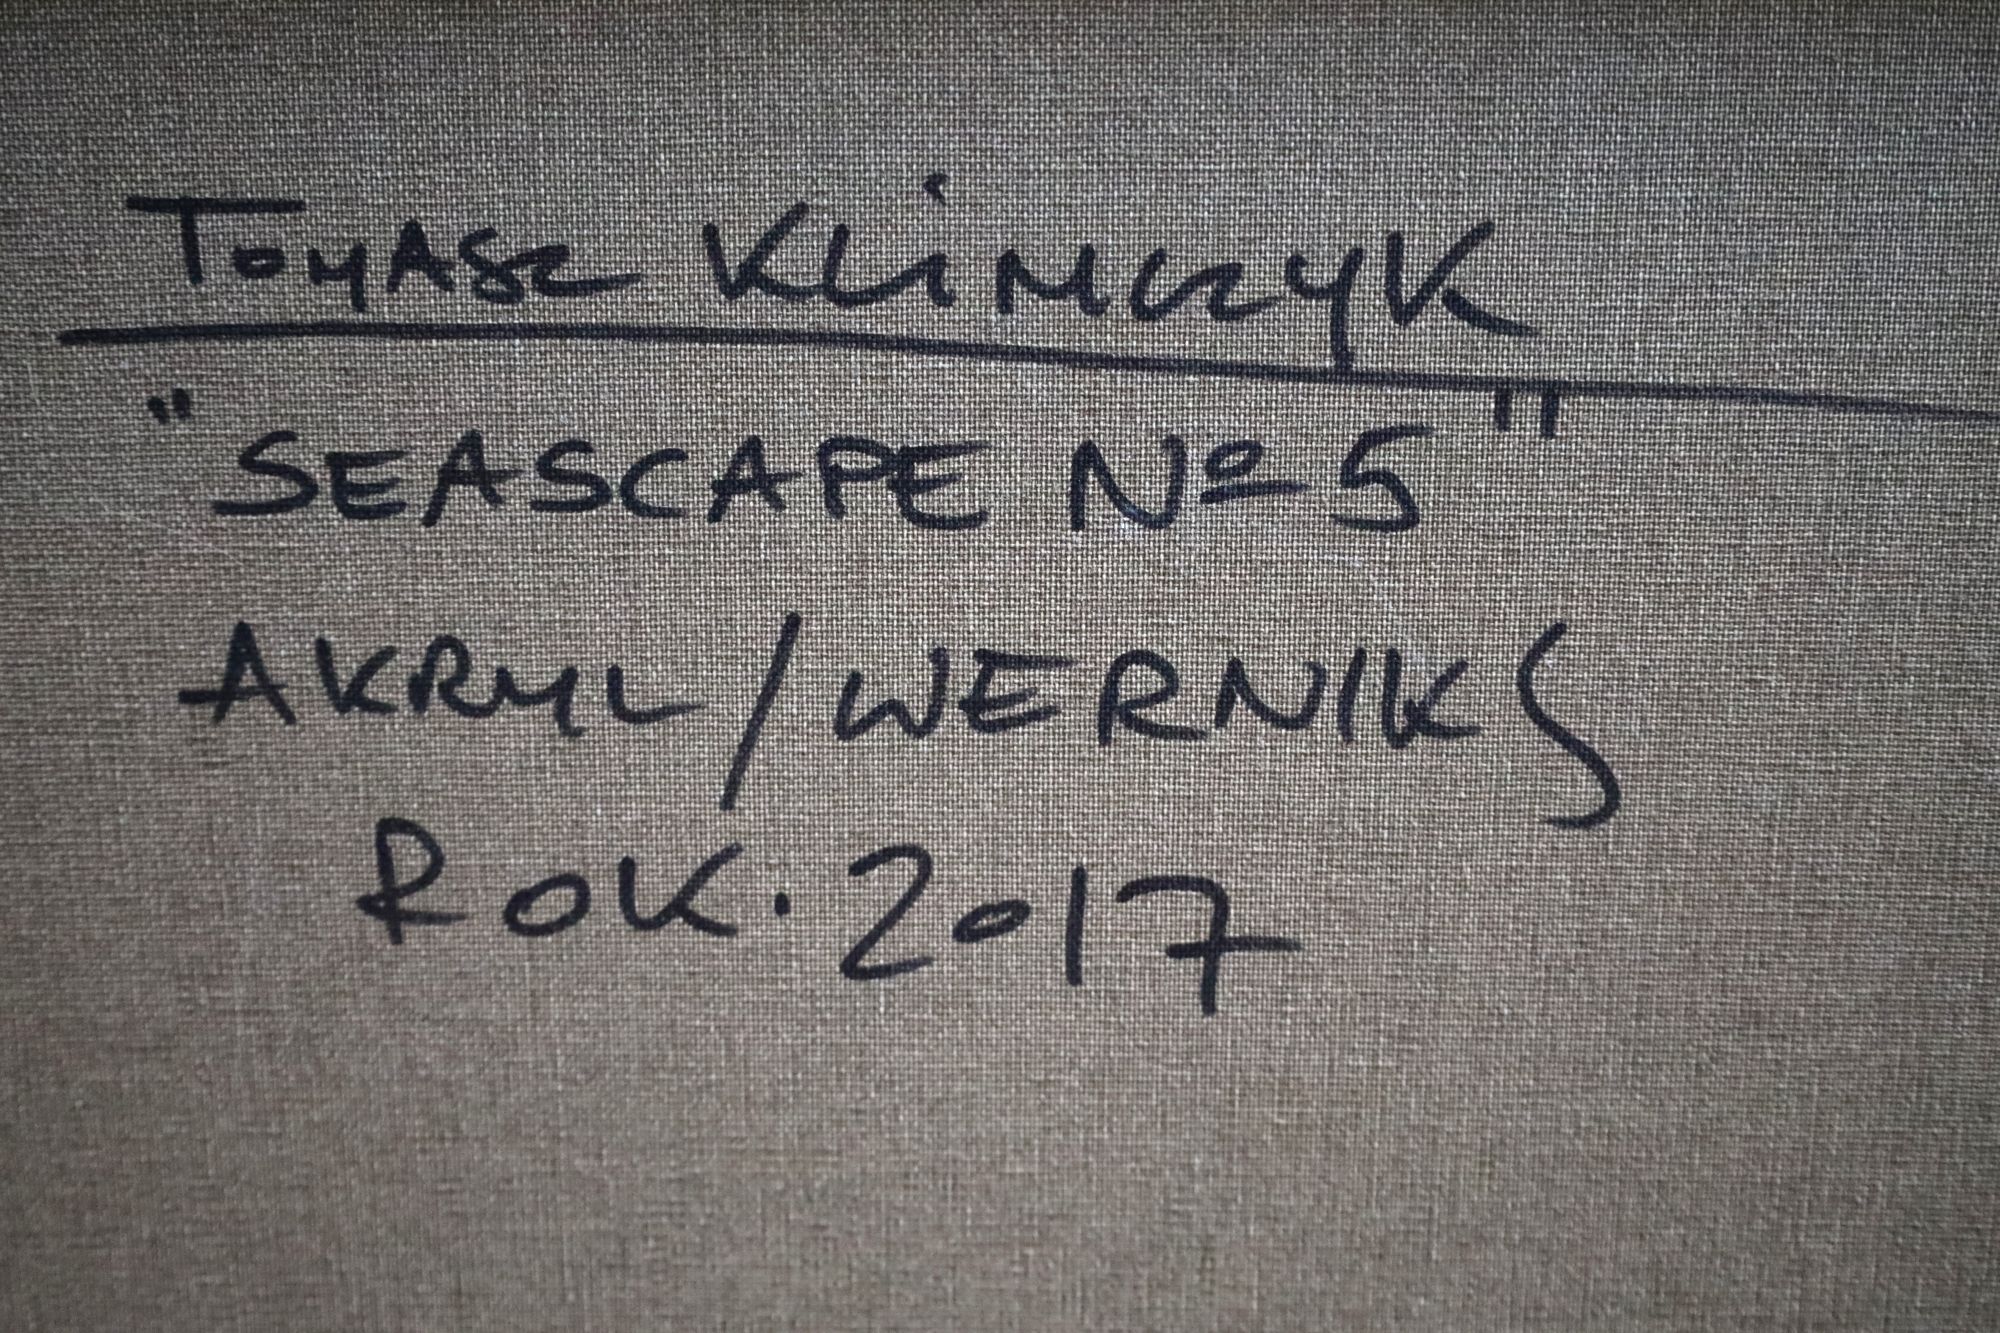 Tomasz Klimczyk
"SEASCAPE Nº 5"
AKRYL/WERNIKS
ROK. 2017